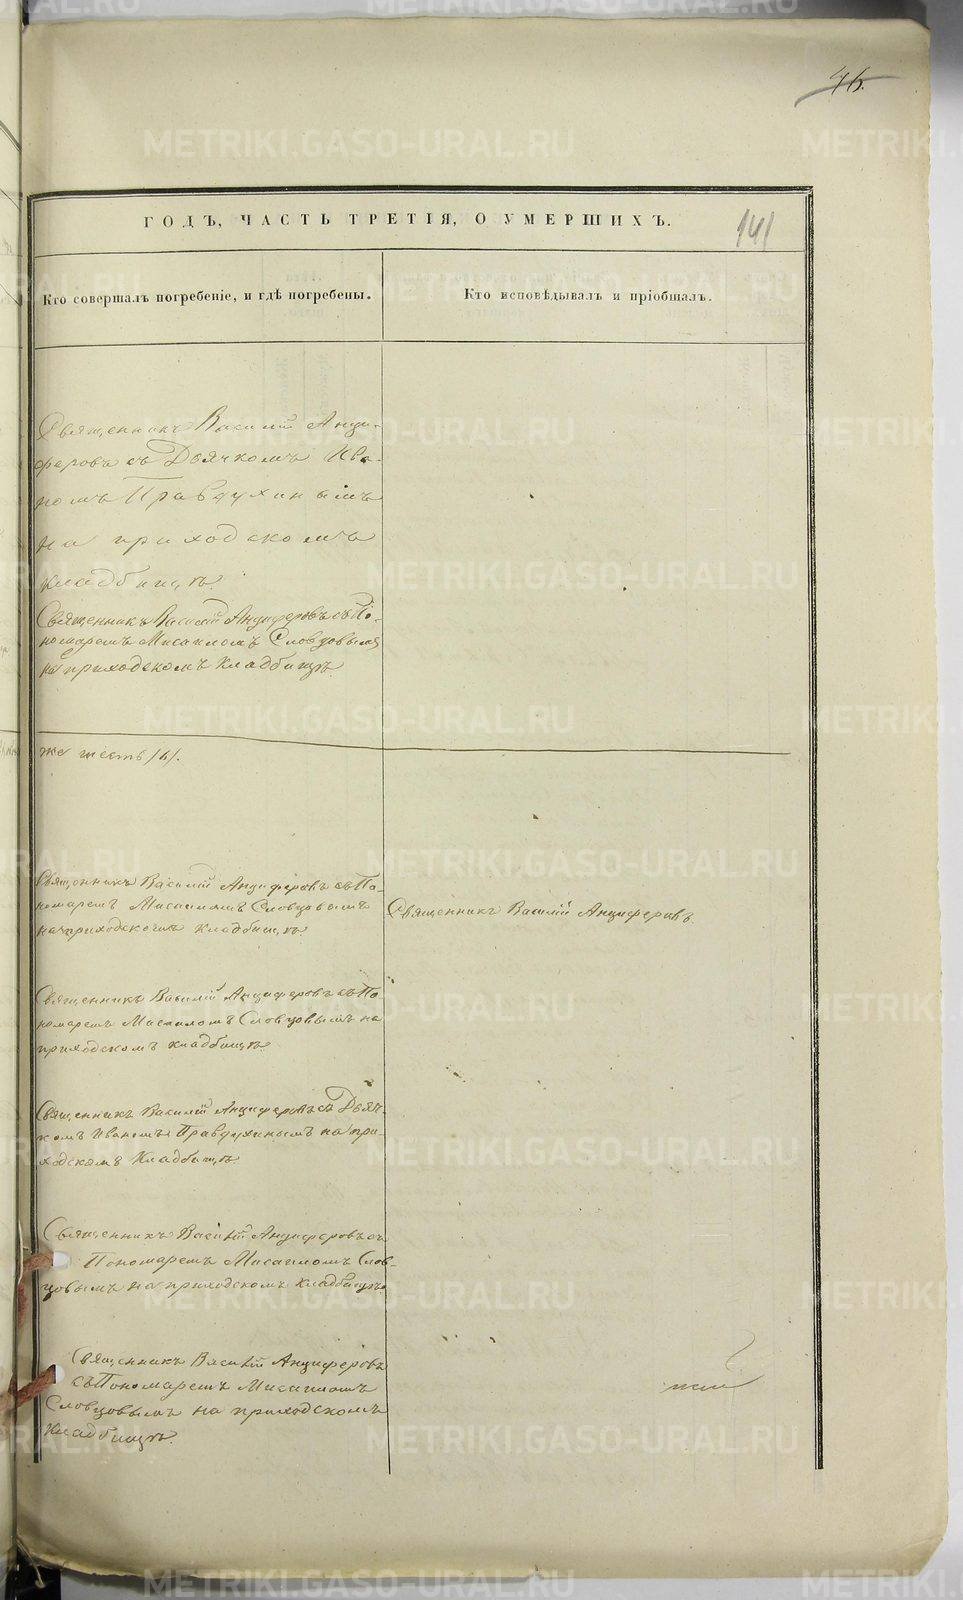 46.
ГОДЪ, ЧАСТЬ ТРЕТІЯ, О УМЕРШИХЪ.
141
Кто совершалъ погребеніе, и гдѣ погребены.
Кто исповѣдывалъ и пріобщалъ.
Священникъ Василій Анци-
феровъ съ Дьячкомъ Ива-
номъ Правдухинымъ
на приходскомъ
кладбищѣ
Священникъ Василій Анциферовъ съ По-
номаремъ Мисаиломъ Словцовымъ
на приходскомъ кладбищѣ.
же шесть /6/.
Священникъ Василій Анциферовъ съ По-
номаремъ Мисаиломъ Словцовымъ
на приходскомъ кладбищѣ.
Священникъ Василій Анциферовъ.
Священникъ Василій Анциферовъ съ По-
номаремъ Мисаиломъ Словцовымъ на
приходскомъ кладбищѣ.
Священникъ Василій Анциферовъ съ Дьяч-
комъ Иваномъ Правдухинымъ на при-
ходскомъ кладбищѣ.
Священникъ Василій Анциферовъ съ
Пономаремъ Мисаиломъ Слов-
цовымъ на приходскомъ кладбищѣ.
Священникъ Василій Анциферовъ
съ Пономаремъ Мисаиломъ
Словцовымъ на приходскомъ
кладбищѣ.
METRIKI.GASO-URAL.RU